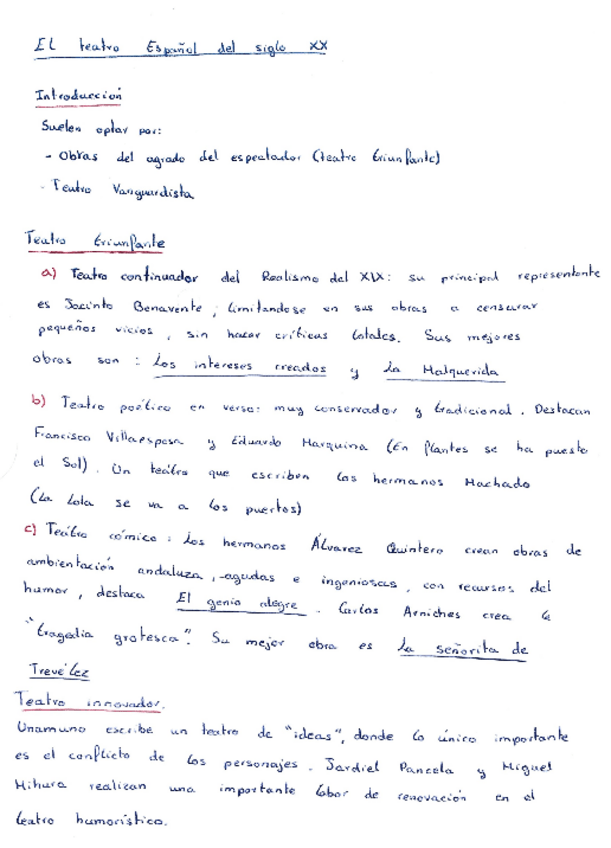 El teatro Español del siglo XX
Introduccion
Suelen optar por:
- Obras del agrado del espectador (teatre triunfante)
- Teatro Vanguardista
Teatro triunfante
a) Teatro continuador del Realismo del XIX: su principal representante
es Jacinto Benavente, limitandose en sus obras a censurar
pequeños vicios, sin hacer críticas totales. Sus mejores
obras son: Los intereses creados y La Malquerida
b) Teatro poético en verso: muy conservador y tradicional. Destacan
Francisco Villaespesa y Eduardo Marquina (En flantes se ha puesto
el Sol). Un teátro que escriben los hermanos Machado
(La Lola se va a los puertos)
c) Teátro cómico: Los hermanos Álvarez Quintero crean obras de
ambientación andaluza, agudas e ingeniosas, con recursos del
humor, destaca El genio alegre. Carlos Arniches crea la
"tragedia grotesca". Su mejor obra es La señorita de
Trevélez
Teatro innovador.
Unamuno escribe un teatro de "ideas", donde lo único importante
es el conflicto de los personajes. Jardiel Poncela y Miguel
Mihura realizan una importante labor de renovación en el
teatro humorístico.